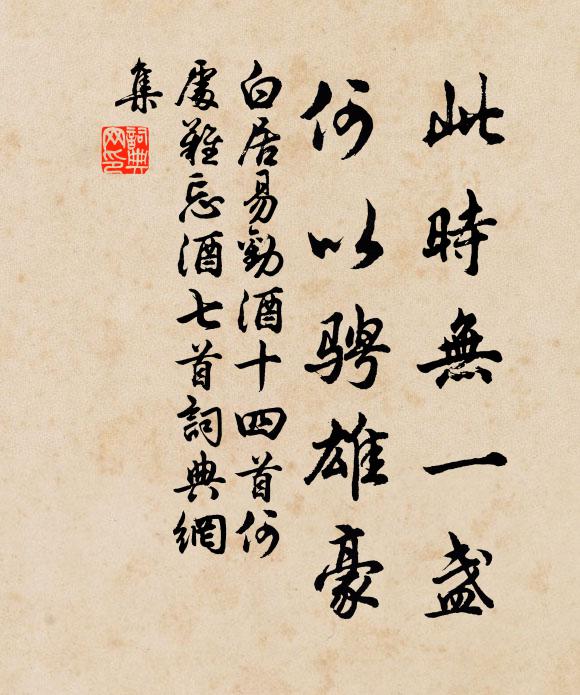 此時無一盞
何以騁雄豪
白居易勸酒十四首何
處難忘酒七首詞典網
集
詞典
网印